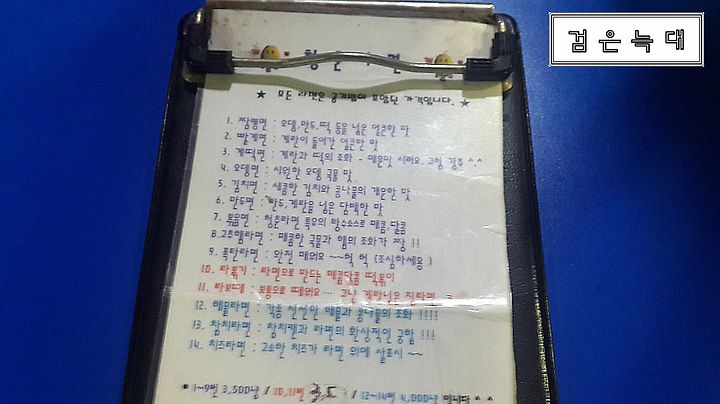 검은늑대
★ 모든 라면은 공기밥이 포함된 가격입니다. ★
1. 짬뽕면 : 오뎅, 만두, 떡 등을 넣은 얼큰한 맛
2. 빨계면 : 계란이 들어간 얼큰한 맛
3. 계떡면 : 계란과 떡의 조화 - 매운맛 시러요. 그럼 강추 ^^
4. 오뎅면 : 시원한 오뎅 국물 맛
5. 김치면 : 새콤한 김치와 콩나물의 개운한 맛
6. 만두면 : 만두, 계란을 넣은 담백한 맛
7. 볶음면 : 청춘라면 특유의 탕수소스로 매콤, 달콤
8. 고추햄라면 : 매콤한 국물과 햄의 조화가 짱 !!
9. 폭탄라면 : 완전 매워요 ~~헉 헉 (조심하세용)
10. 라볶기 : 라면으로 만드는 매콤달콤 떡볶이
11. 라보때 : 보통으로 때워요 … 그냥 계란넣은 진라면
12. 해물라면 : 각종 신선한 해물과 콩나물의 조화 !!!!
13. 참치라면 : 참치캔과 라면의 환상적인 궁합 !!!
14. 치즈라면 : 고소한 치즈가 라면 위에 살포시 ~~
* 1~9번 3,500냥 / 10,11번 / 12~14번 4,000냥 입니다 ^^